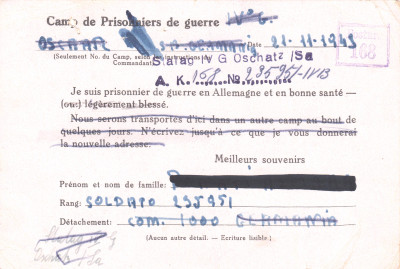 Camp de Prisonniers de guerre IV G.
OSCHATZ S.A. GERMANIA Date 21-11-1943
(Seulement No. du Camp, selon les instructions du
Commandant) Stalag IV G Oschatz /Sa
168
A. K. 168. No 235951-IVB
Je suis prisonnier de guerre en Allemagne et en bonne santé —
(ou:) légèrement blessé.
Nous serons transportés d'ici dans un autre camp au bout de
quelques jours. N'écrivez jusqu'à ce que je vous donnerai
la nouvelle adresse.
Meilleurs souvenirs
Prénom et nom de famille:
Rang: SOLDATO 235951
Détachement: COM. 1000 GERMANIA
(Aucun autre détail. — Ecriture lisible.)
Stalag IV G